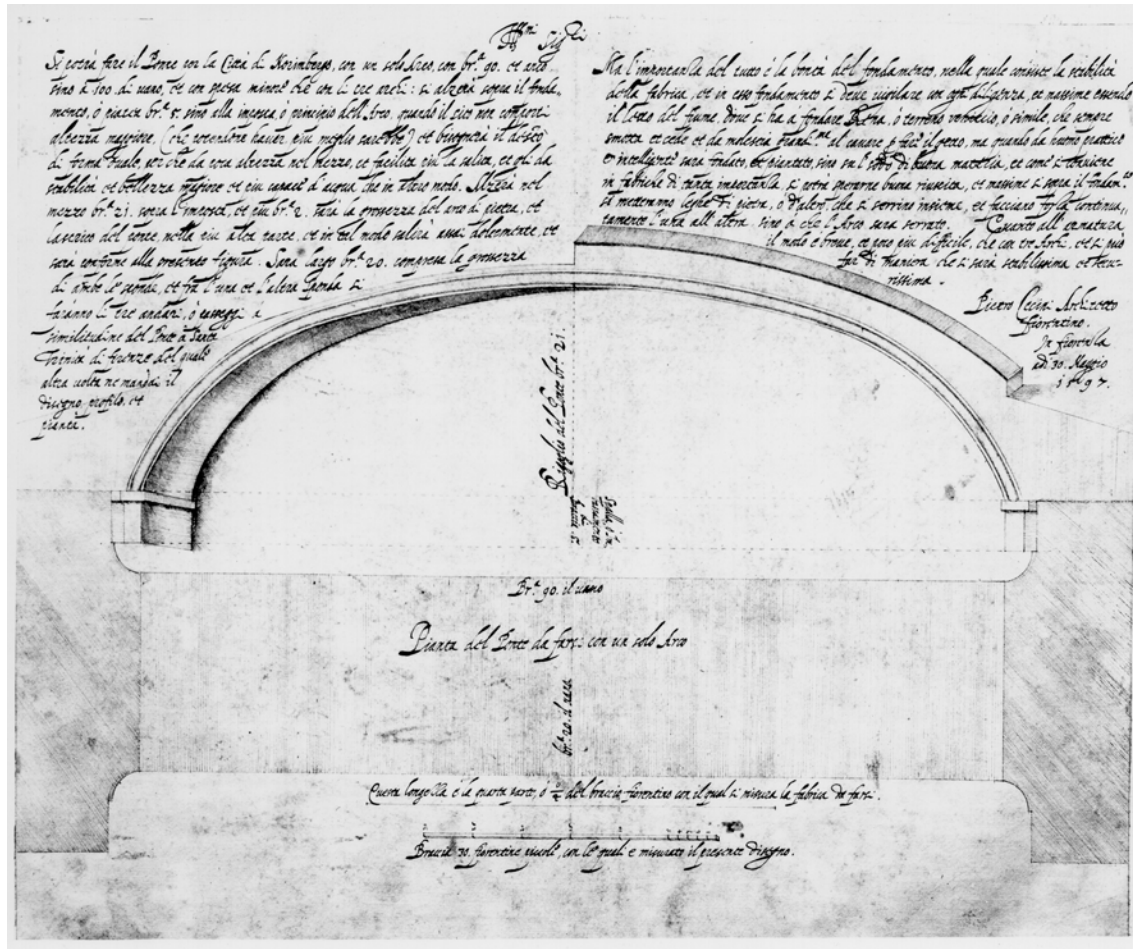 Ill.mi Sig.ri
Si potrà fare il Ponte per la Città di Norimbergo, con un solo Arco, con br.a 90. et anco
sino à 100. di uano, et con spesa minore che con li tre archi: si alzerà sopra il fonda-
mento, ò piazza br.a 5. sino alla imposta, ò principio dell'Arco, quando il sito non comporti
altezza maggiore, (che potendone hauer più meglio sarebbe) et bisognerà il
di forma ouale, per che da poca altezza nel mezzo, et facilita più la salita, et gli da
stabilità et bellezza magiore et più capace d'acqua che in altro modo. Alzerà nel
mezzo br.a 21. sopra l'imposta, et più br.a 2. sarà la grossezza del arco di pietra, et
lastrico del ponte, nella più alta parte, et in tal modo salirà assai dolcemente, et
sarà conforme alla presente figura. Sarà largo br.a 20. compresa la grossezza
di ambe le sponde, et fra l'una et l'altra sponda si
faranno li tre andari, ò passeggi a
similitudine del Ponte à Santa
Trinita di firenze del quale
altra uolta ne mandai il
disegno, profilo, et
pianta.
Ma l'importanza del tutto è la bontà del fondamento, nella quale consiste la stabilità
della fabrica, et in esso fondamento si deue uigilare con ogni diligenza, et massime essendo
il letto del fiume, doue si ha a fondare o terreno o simile, che sempre
smotta et cede et da molestia grand.ma al cauare p farci il getto, ma quando da huomo prattico
et intelligente sarà fondato, et piantato, sino sul sodo di buona materia, et come si conuiene
in fabriche di tanta importanza, si potrà sperarne buona riuscita, et massime si sopra il fondam.to
si metteranno leghe di pietra, o d'altro che si serrino insieme, et facciano continua-
tamente l'una all'altra sino à che l'Arco sarà serrato. Quanto all'armatura,
il modo è breue, et poco più difficile, che con tre Archi, et si può
far di maniera che si sarà stabilissima et
rissima.
Pietro Architetto
fiorentino.
In fiorenza
adi 30. Maggio
1597.
del Ponte br.a 21.
Br.a 90. il uano
Pianta del Ponte da farsi con un solo Arco
br.a 20.
Questa longezza è la quarta parte, ò 1/4 del braccio fiorentino con il qual si misura la fabrica da farsi.
Braccia 30. fiorentine piccole, con le quali e misurato il presente disegno.